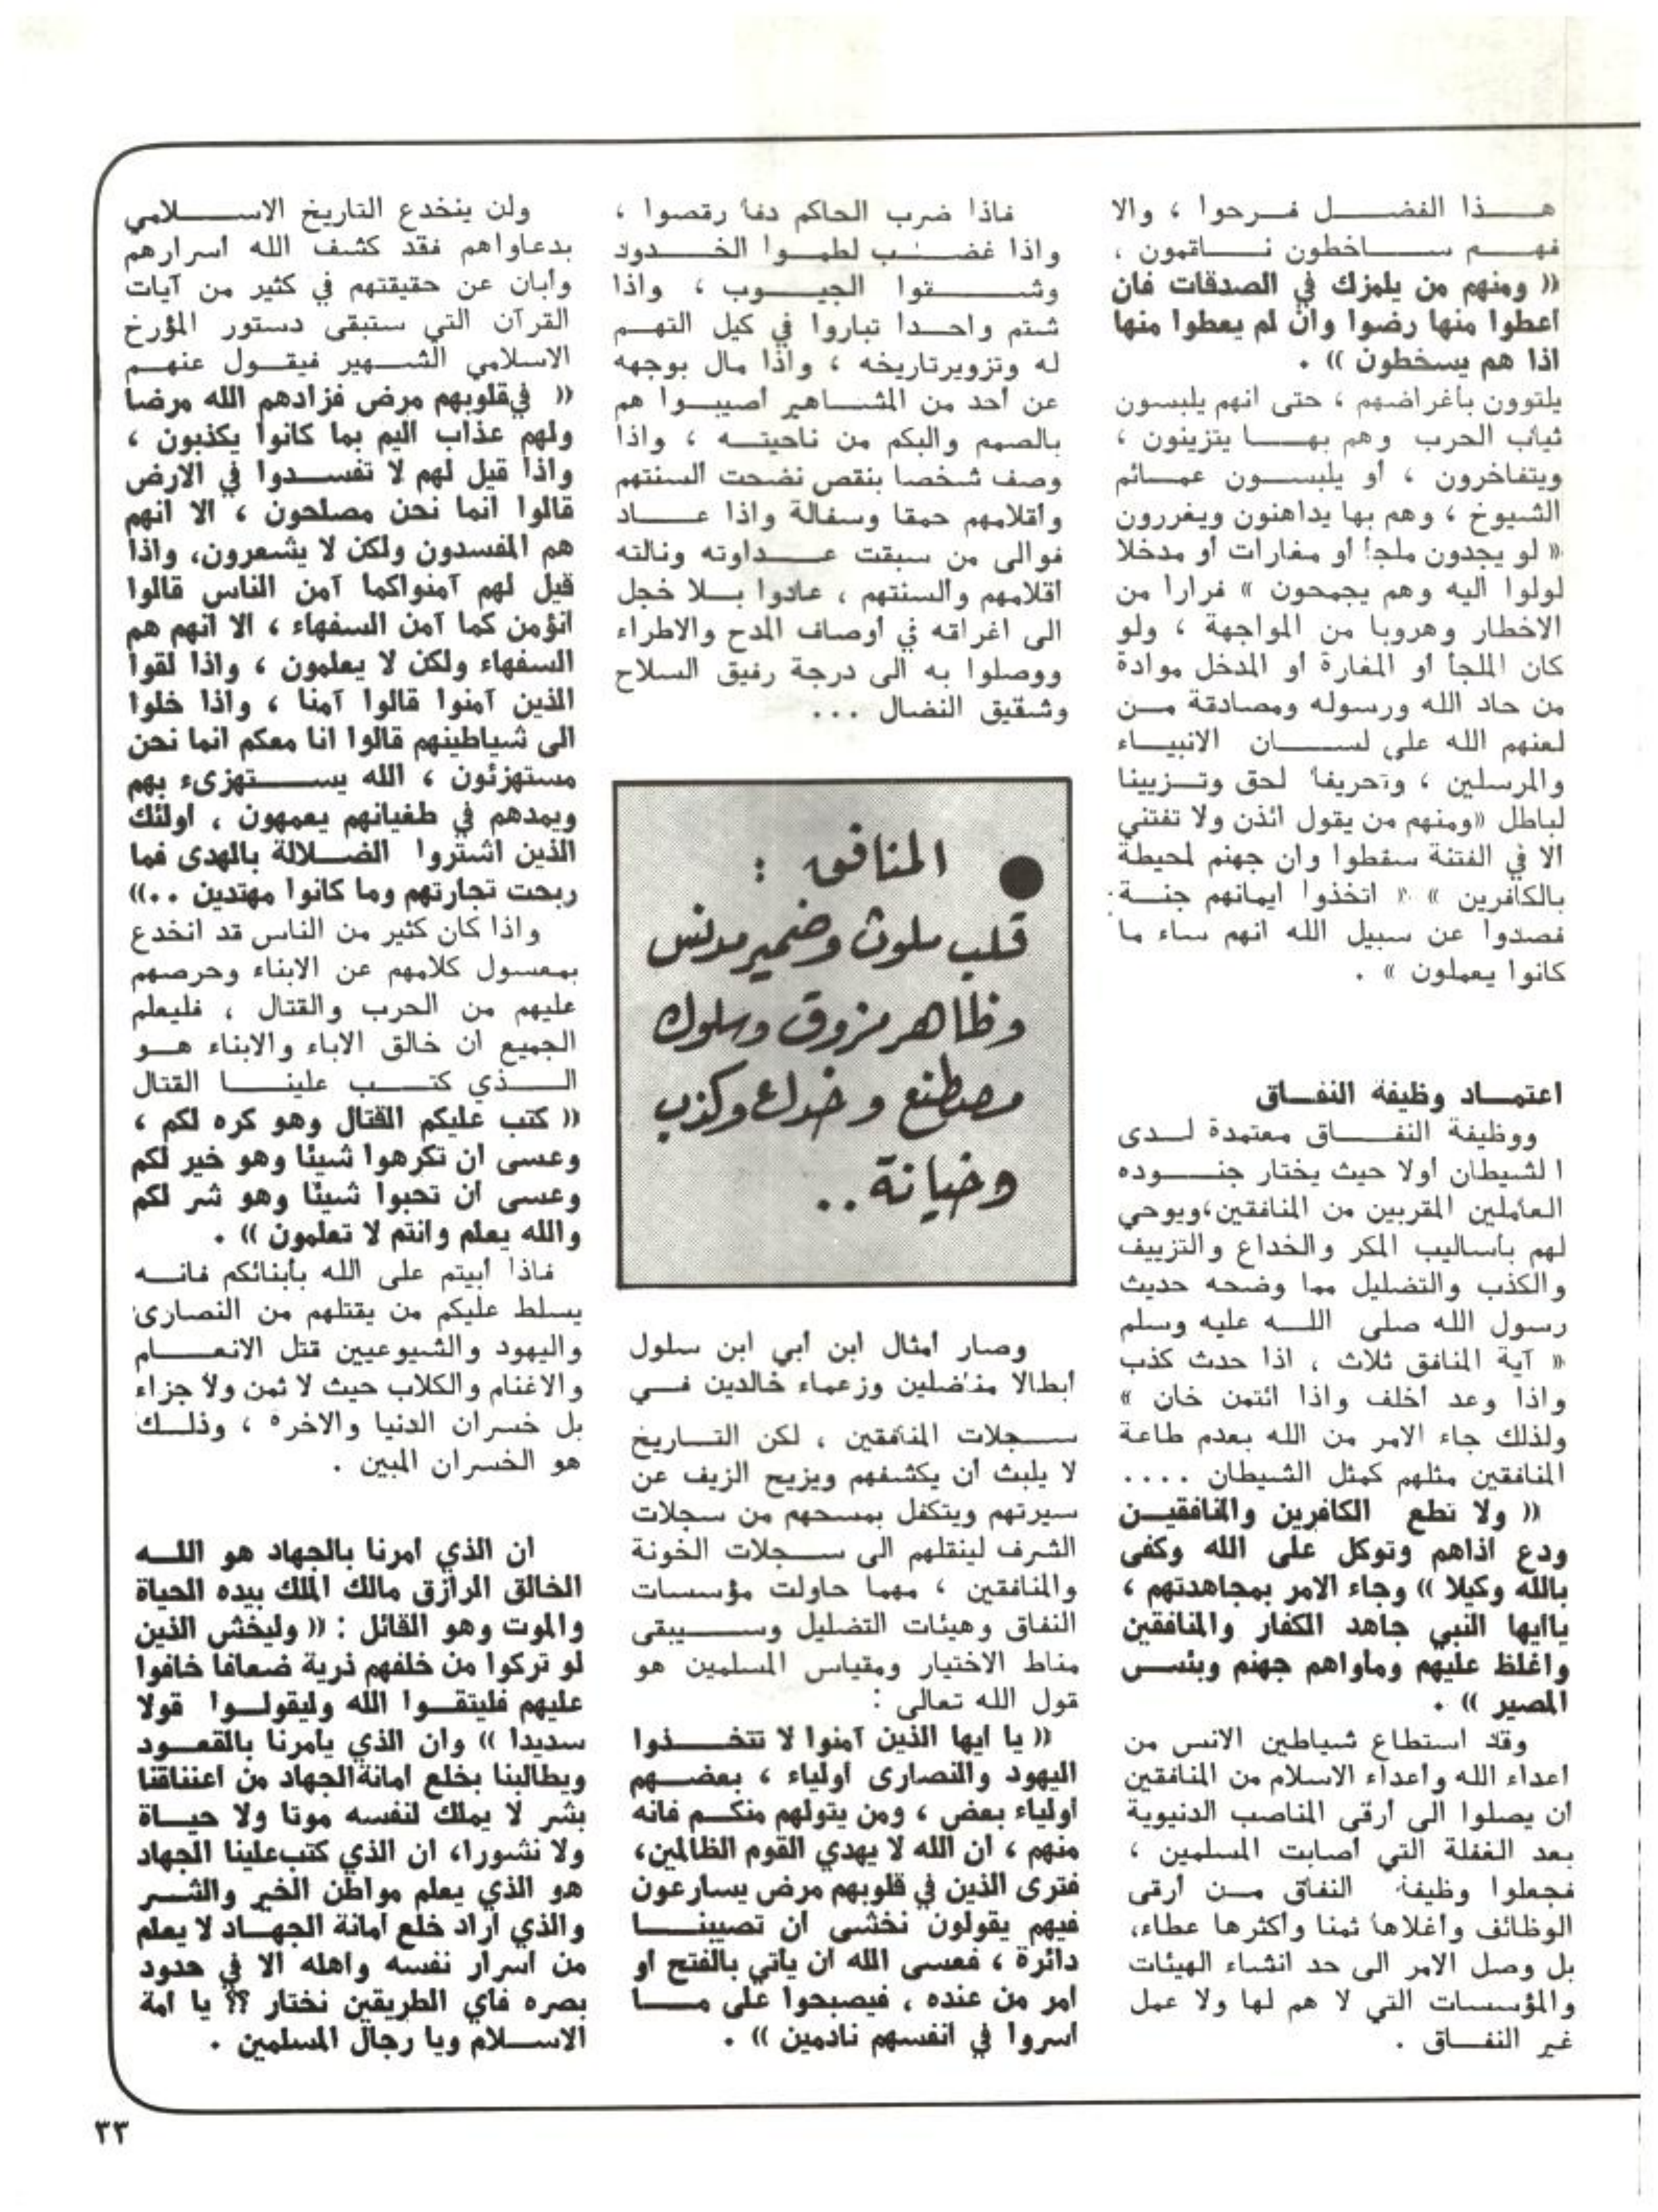 هذا الفضل فرحوا ، والا
فهم ساخطون ناقمون ،
(( ومنهم من يلمزك في الصدقات فان
اعطوا منها رضوا وان لم يعطوا منها
اذا هم يسخطون )) .
يلتوون بأغراضهم ، حتى انهم يلبسون
ثياب الحرب وهم بها يتزينون ،
ويتفاخرون ، أو يلبسون عمائم
الشيوخ ، وهم بها يداهنون ويغررون
« لو يجدون ملجأ أو مغارات أو مدخلا
لولوا اليه وهم يجمحون » فرارا من
الاخطار وهروبا من المواجهة ، ولو
كان الملجأ أو المغارة أو المدخل موادة
من حاد الله ورسوله ومصادقة من
لعنهم الله على لسان الانبياء
والمرسلين ، وتحريفا لحق وتزيينا
لباطل «ومنهم من يقول ائذن ولا تفتني
الا في الفتنة سقطوا وان جهنم لمحيطة
بالكافرين » « اتخذوا ايمانهم جنة
فصدوا عن سبيل الله انهم ساء ما
كانوا يعملون » .
اعتماد وظيفة النفاق
ووظيفة النفاق معتمدة لدى
الشيطان أولا حيث يختار جنوده
العاملين المقربين من المنافقين،ويوحي
لهم بأساليب المكر والخداع والتزييف
والكذب والتضليل مما وضحه حديث
رسول الله صلى الله عليه وسلم
« آية المنافق ثلاث ، اذا حدث كذب
واذا وعد أخلف واذا ائتمن خان »
ولذلك جاء الامر من الله بعدم طاعة
المنافقين مثلهم كمثل الشيطان ....
(( ولا تطع الكافرين والمنافقين
ودع اذاهم وتوكل على الله وكفى
بالله وكيلا )) وجاء الامر بمجاهدتهم ،
ياايها النبي جاهد الكفار والمنافقين
واغلظ عليهم ومأواهم جهنم وبئس
المصير )) .
وقد استطاع شياطين الانس من
أعداء الله وأعداء الاسلام من المنافقين
أن يصلوا الى أرقى المناصب الدنيوية
بعد الغفلة التي أصابت المسلمين ،
فجعلوا وظيفة النفاق من أرقى
الوظائف وأغلاها ثمنا وأكثرها عطاء،
بل وصل الامر الى حد انشاء الهيئات
والمؤسسات التي لا هم لها ولا عمل
غير النفاق .
فاذا ضرب الحاكم دفا رقصوا ،
واذا غضب لطموا الخدود
وشقوا الجيوب ، واذا
شتم واحدا تباروا في كيل التهم
له وتزويرتاريخه ، واذا مال بوجهه
عن أحد من المشاهير أصيبوا هم
بالصمم والبكم من ناحيته ، واذا
وصف شخصا بنقص نضحت السنتهم
وأقلامهم حمقا وسفالة واذا عاد
فوالى من سبقت عداوته ونالته
أقلامهم والسنتهم ، عادوا بلا خجل
الى اغراقه في أوصاف المدح والاطراء
ووصلوا به الى درجة رفيق السلاح
وشقيق النضال ...
● المنافق :
قلب ملوث وضمير مدنس
وظاهر مزوق وسلوك
مصطنع وخداع وكذب
وخيانة ..
وصار أمثال ابن أبي ابن سلول
أبطالا مناضلين وزعماء خالدين في
سجلات المنافقين ، لكن التاريخ
لا يلبث أن يكشفهم ويزيح الزيف عن
سيرتهم ويتكفل بمسحهم من سجلات
الشرف لينقلهم الى سجلات الخونة
والمنافقين ، مهما حاولت مؤسسات
النفاق وهيئات التضليل وسيبقى
مناط الاختيار ومقياس المسلمين هو
قول الله تعالى :
(( يا ايها الذين آمنوا لا تتخذوا
اليهود والنصارى أولياء ، بعضهم
أولياء بعض ، ومن يتولهم منكم فانه
منهم ، ان الله لا يهدي القوم الظالمين،
فترى الذين في قلوبهم مرض يسارعون
فيهم يقولون نخشى أن تصيبنا
دائرة ، فعسى الله ان يأتي بالفتح او
امر من عنده ، فيصبحوا على ما
اسروا في انفسهم نادمين )) .
ولن ينخدع التاريخ الاسلامي
بدعاواهم فقد كشف الله أسرارهم
وأبان عن حقيقتهم في كثير من آيات
القرآن التي ستبقى دستور المؤرخ
الاسلامي الشهير فيقول عنهم
(( فيقلوبهم مرض فزادهم الله مرضا
ولهم عذاب اليم بما كانوا يكذبون ،
واذا قيل لهم لا تفسدوا في الارض
قالوا انما نحن مصلحون ، الا انهم
هم المفسدون ولكن لا يشعرون، واذا
قيل لهم آمنواكما آمن الناس قالوا
انؤمن كما آمن السفهاء ، الا انهم هم
السفهاء ولكن لا يعلمون ، واذا لقوا
الذين آمنوا قالوا آمنا ، واذا خلوا
الى شياطينهم قالوا انا معكم انما نحن
مستهزئون ، الله يستهزىء بهم
ويمدهم في طغيانهم يعمهون ، اولئك
الذين اشتروا الضلالة بالهدى فما
ربحت تجارتهم وما كانوا مهتدين ..))
واذا كان كثير من الناس قد انخدع
بمعسول كلامهم عن الابناء وحرصهم
عليهم من الحرب والقتال ، فليعلم
الجميع ان خالق الاباء والابناء هو
الذي كتب علينا القتال
(( كتب عليكم القتال وهو كره لكم ،
وعسى ان تكرهوا شيئا وهو خير لكم
وعسى ان تحبوا شيئا وهو شر لكم
والله يعلم وانتم لا تعلمون )) .
فاذا أبيتم على الله بأبنائكم فانه
يسلط عليكم من يقتلهم من النصارى
واليهود والشيوعيين قتل الانعام
والاغنام والكلاب حيث لا ثمن ولا جزاء
بل خسران الدنيا والاخرة ، وذلك
هو الخسران المبين .
ان الذي أمرنا بالجهاد هو الله
الخالق الرازق مالك الملك بيده الحياة
والموت وهو القائل : (( وليخش الذين
لو تركوا من خلفهم ذرية ضعافا خافوا
عليهم فليتقوا الله وليقولوا قولا
سديدا )) وان الذي يأمرنا بالقعود
ويطالبنا بخلع امانةالجهاد من اعناقنا
بشر لا يملك لنفسه موتا ولا حياة
ولا نشورا، ان الذي كتبعلينا الجهاد
هو الذي يعلم مواطن الخير والشر
والذي أراد خلع أمانة الجهاد لا يعلم
من اسرار نفسه واهله الا في حدود
بصره فأي الطريقين نختار ؟؟ يا امة
الاسلام ويا رجال المسلمين .
٣٣